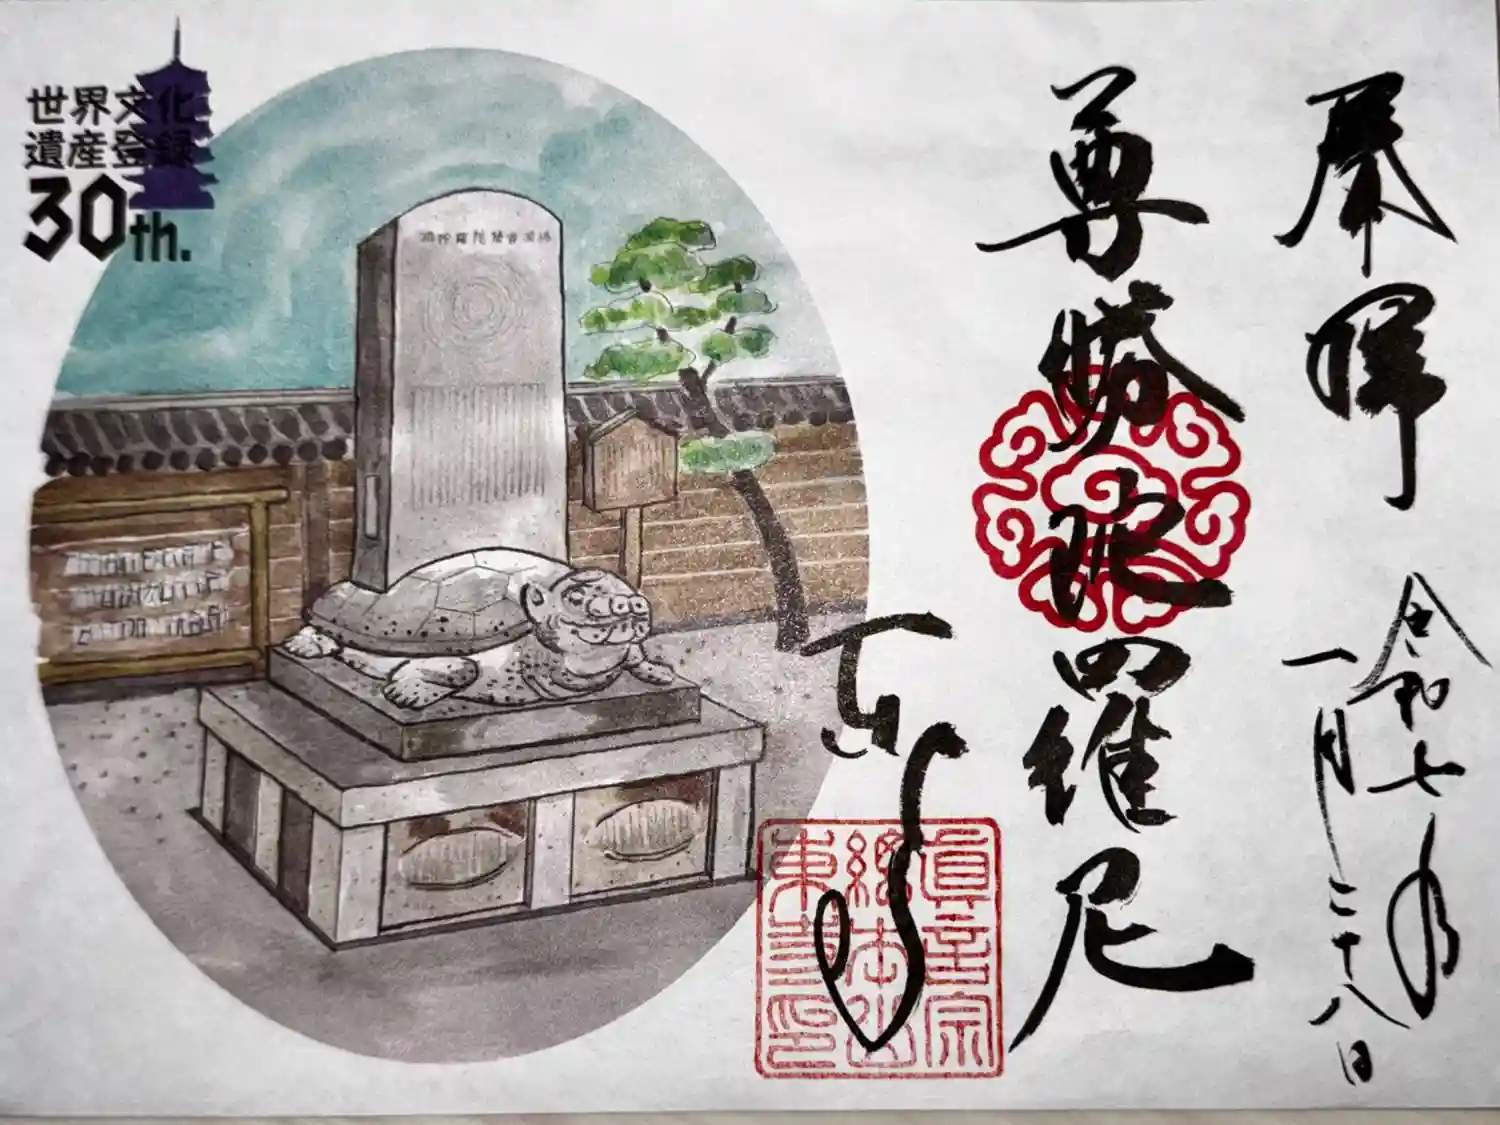 奉拝
令和七年
一月二十八日
尊勝陀羅尼
東寺
真言宗
総本山
東寺印
世界文化
遺産登録
30th.